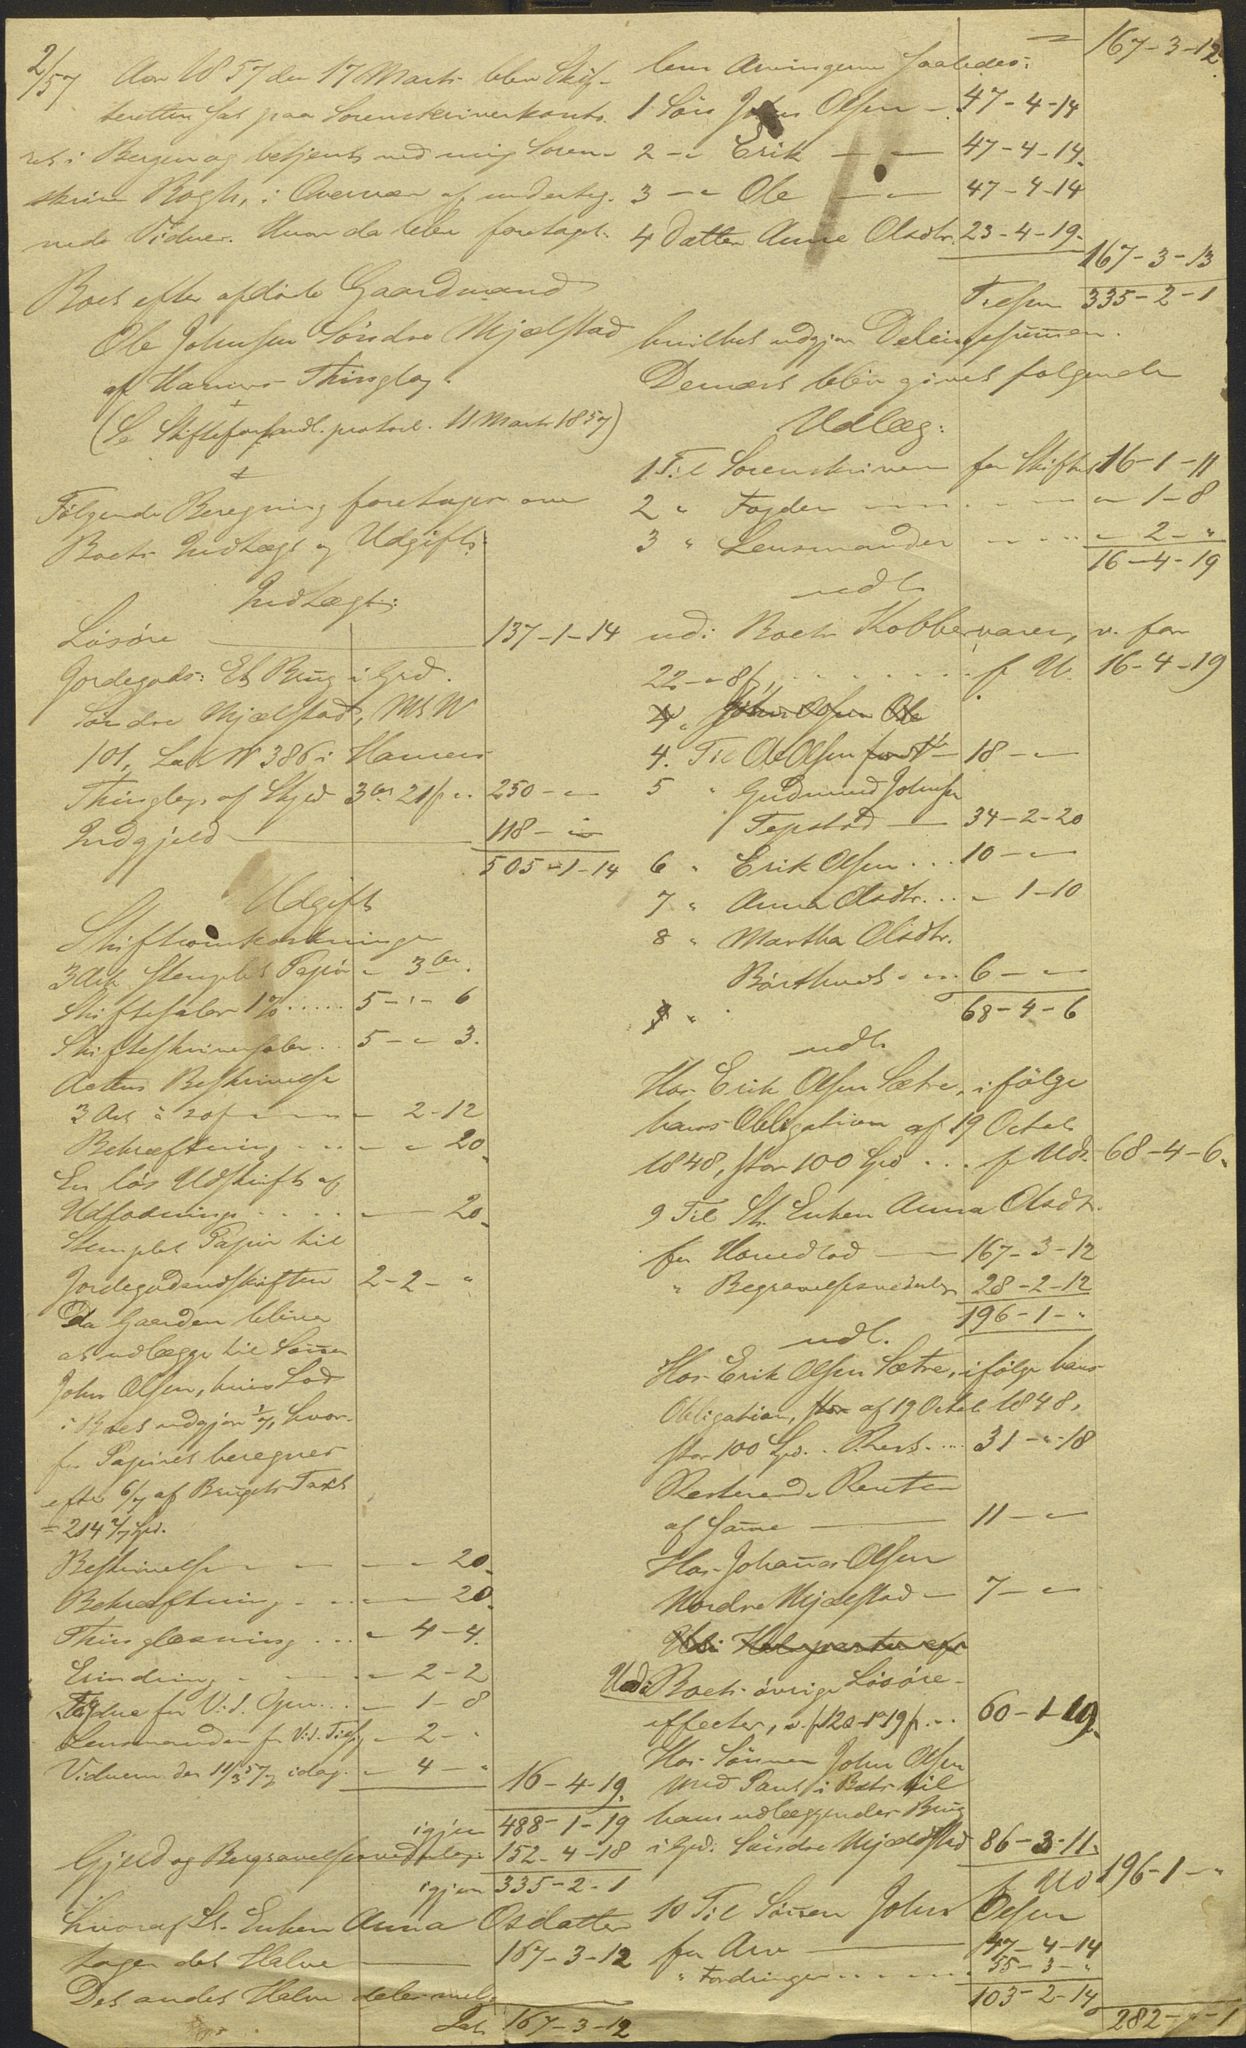 2/57 Aar 1857 den 17 Marts blev Skif-
teretten sat paa Sorenskriverkonto-
ret i Bergen og betjent ved mig Soren-
skriver Rogh, i Overvær af underteg-
nede Vidner. Hvor da blev foretaget
Boet efter afdøde Gaardmand
Ole Johnsen Søndre Mjælstad
af Hammers Thinglag.
(Se Skifteforhandl. protocol. 11 Marts 1857)
Følgende Beregning foretages over
Boets Indtægt og Udgift:
Indtægt:
Løsøre 137-1-14
Jordegods: Et Brug i Grd.
Søndre Mjælstad, M N
101, Løb N 386 i Hammers
Thinglag af Skyld 3 21 250 - "
Indgjeld 118 - "
505-1-14
Udgift
Skifteomkostninger
3 Ark Stemplet Papir " 3
Skiftesaler 1% 5 - " - 6
Skifteskriversaler 5 - " 3.
Aettens Beskrivelse
3 Ark à 20 " 2-12
Bekræftning " " 20
En løs Udskrift af
Udlodning 20
Stemplet Papir til
Jordegodsudskriften 2-2- "
Da Gaarden bliver
at udlægge til Sønnen
John Olsen, hvis Lod
i Boet udgjør 1/7, hvor-
for Papiret beregnes
efter 6/7 af Brugets Taxt
= 214 2/7 Spd.
Beskrivelse " 20
Bekræftning " 20
Thinglæsning " 4-4.
Erindring " 2-2
Fogden for V.d. Gjen " 1-8
Lensmanden for V.d. Tilsg " 2 - "
Vidnerne den 11/3 57 og idag " 4 - "
16-4-19.
igjen 488-1-19
Gjeld og Begravelsesvederlag 152-4-18
igjen 335-2-1
hvoraf St. Enken Anna Olsdatter
tager det Halve 167-3-12
Det andet Halve deles mel-
Lat. 167-3-12
167-3-12.
lem Arvingerne saaledes:
1 Søn John Olsen 47-4-14
2 - " Erik 47-4-14.
3 - " Ole 47-4-14
4 Datter Anne Olsdtr. 23-4-19.
167-3-13
Tilsm 335-2-1
hvilket udgjør Delingssummen.
Dernæst blev gjort følgende
Udlæg:
1 Til Sorenskriveren for Skiftet 16-1-11
2 " Fogden " 1-8
3 " Lensmanden " 2 - "
16-4-19
udl.
udi Boets Kobbervarer, v. for
22 - " 8 f U. 16-4-19
4 " John Olsen Ole
4. Til Ole Olsen 18 - "
5 " Gudmund Johnsen
Tepstad 34-2-20
6 " Erik Olsen 10 - "
7 " Anna Olsdtr. " 1-10
8 " Martha Olsdtr.
6 - "
9 " 68-4-6
udl.
Hos Erik Olsen Sætre, ifølge
hans Obligation af 19 Octob
1848, stor 100 Spd f Udl. 68-4-6.
9 Til St. Enken Anna Olsdtr.
for Hovedlod 167-3-12
" Begravelsesvederlag 28-2-12
196-1- "
udl.
Hos Erik Olsen Sætre, ifølge hans
Obligation, stor af 19 Octob 1848,
stor 100 Spd. Rest 31 - " - 18
Resterende Renter
af Samme 11 - "
Hos Johannes Olsen
Nordre Mjælstad 7 - "
Udi
Udi Boets øvrige Løsøre-
effecter, v. f 120-1-19 60-1-19.
Hos Sønnen John Olsen
med Pant i Boets til
ham udlæggendes Brug
i Grd. Søndre Mjælstad 86-3-11.
f Ud 196-1- "
10 Til Sønnen John Olsen
for Arv 47-4-14
" Fordringer 55-3- "
103-2-14
282 - " - 1